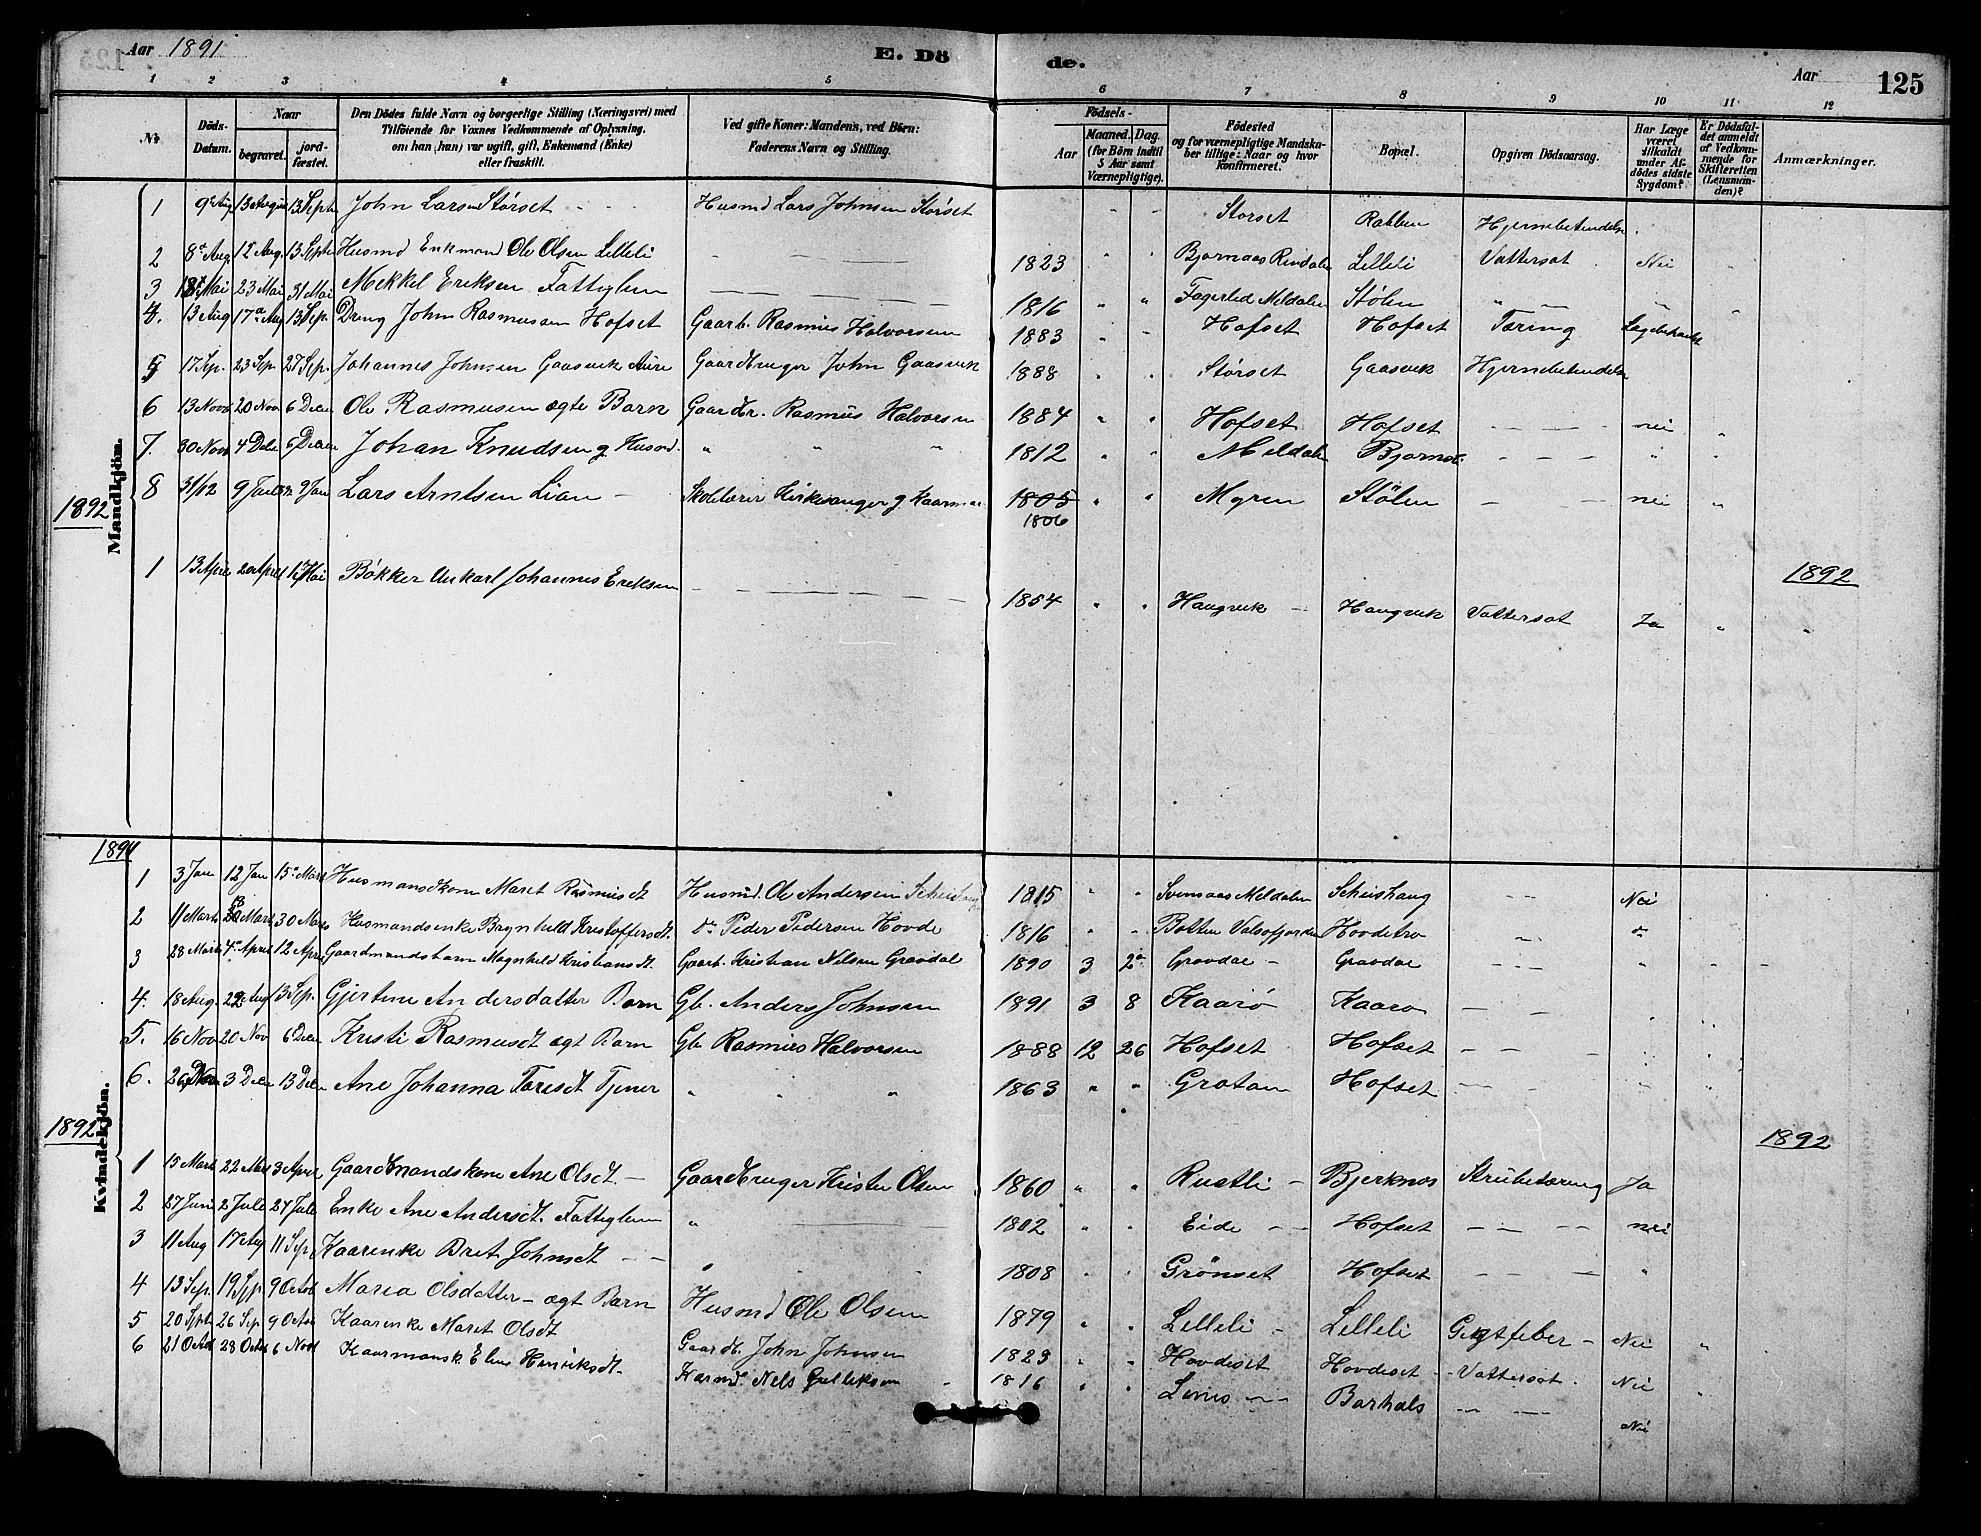 Aar 1891 E. Dö de. Aar 125
1 2 3 4 5 6 7 8 9 10 11 12
№ Döds-Datum. Naar begravet. jord-fæstet. Den Dödes fulde Navn og borgerlige Stilling (Næringsvei) med Tilföiende for Voxnes Vedkommende af Oplysning, om han (hun) var ugift, gift, Enkemand (Enke) eller fraskilt. Ved gifte Koner: Mandens, ved Börn: Faderens Navn og Stilling. Födsels- Aar Maaned. Dag. (for Börn indtil 5 Aar samt Værnepligtige). Födested og for værnepligtige Mandska-ber tillige: Naar og hvor konfirmeret. Bopæl. Opgiven Dödsaarsag. Har Læge været tilkaldt under Af-dödes sidste Sygdom? Er Dödsfal-det anmeldt af Vedkom-mende for Skifteretten (Lensman-den)? Anmærkninger.
Mandkjön.
1 9 Aug 13 August 13 Septr John Larsen Störset Husmd Lars Johnsen Störset " " Störset Rakben Hjernebetændelse
2 8 Aug 12 Aug. 13 Septr Husmd Enkmand Ole Olsen Lilleli — — — 1823 " " Bjørnaas Rindalen Lilleli Vattersot Nei
3 18 Mai 23 Mai 31 Mai Mekkel Eriksen Fattiglem — — — 1816 " " Fagerlid Meldalen Stölen " — "
4. 13 Aug 17 Aug 13 Sep. Dreng John Rasmussen Hofset Gaarb. Rasmus Halvorsen 1883 " " Hofset Hofset Tæring Lægebehandl
5 17 Sep. 23 Sep. 27 Sep. Johannes Johnsen Gaasvik Aure Gaardbruger John Gaasvik 1888 " " Störset Gaasvik Hjernebetændelse
6 13 Novb 20 Nov 6 Decbr Ole Rasmusen ægte Barn Gaardbr. Rasmus Halvorsen 1884 " " Hofset Hofset — — — nei "
7. 30 Novb 4 Decbr 6 Decbr Johan Knudsen g Husmd. " " " 1812 " " Meldalen Bjørnst. — — — " "
1892
8 31/12 9 Jan 92 9 Jan Lars Arntsen Lian — Skolelærer Kirkesanger g. Kaarmand 1805 1806 " " Myren Stölen — — — nei "
1 13 April 20 April 1 Mai Bökker Unkarl Johannes Eriksen — — — 1854 " " Haugvik — Haugvik Vattersot Ja " " 1892
Kvindekjön.
1891
1 3 Jan 12 Jan 15 Mars Husmandskone Maret Rasmusdt Husmd. Ole Andersen Scheishaug 1815 " " Svensaas Meldalen Scheishaug — — Nei
2 11 Marts 20 Marts 30 Mars Husmandsenke Brynhild Kristoffersdt. Do Peder Pedersen Hovde 1816 " " Botten Valsøfjorden Hovdetrø — — do
3 28 Marts 4 April 12 April Gaardmandsbarn Magnhild Kristiansdt. Gaarb. Kristian Nilsen Gravdal 1890 3 2 Gravdal — Gravdal — — — " — —
4. 18 Aug. 22 Aug 13 Sep. Gjertine Andersdatter Barn Gb. Anders Johnsen 1891 3 8 Kaarö Kaarø — — "
5. 16 Nov 20 Nov 6 Decbr Kristi Rasmusdt ægt Barn Gb Rasmus Halvorsen 1888 12 26 Hofset Hofset — — — " "
6. 26 Nov 3 Decbr 13 Decbr Ane Johanna Toresdt Tjener " " " 1863 " " Grøtan Hofset — — — " "
1892 1892
1 15 Mart 22 Mars 3 April Gaardmandskone Ane Olsdt. — Gaardbruger Krister Olsen 1860 " " Rustli — Bjerknes Strubetæring Ja
2 27 Juni 2 Juli 24 Juli Enke Ane Andersdt. Fattiglem " — — 1802 " " Eide — — Hofset — — — nei
3 11 Aug 17 Aug 11 Sep Kaarenke Bret Johnsdt — — " 1808 " " Grönset Hofset — — — "
4 13 Sep. 19 Sep 9 Octob Maria Olsdatter — ægt Barn Husmd Ole Olsen 1879 " " Lilleli — Lilleli Gigtfeber — Nei "
5 20 Septr 26 Sep 9 Octbr Kaarenke Maret Olsdt Gaardb. John Johnsen 1823 " " Hovdeset Hovdeset — Vattersot. Nei "
6 21 Octob 28 Octbr 6 Novb Kaarmansk Elen Henriksdt. Kaarmd. Nels 1816 " " — — Barhals — — Nei